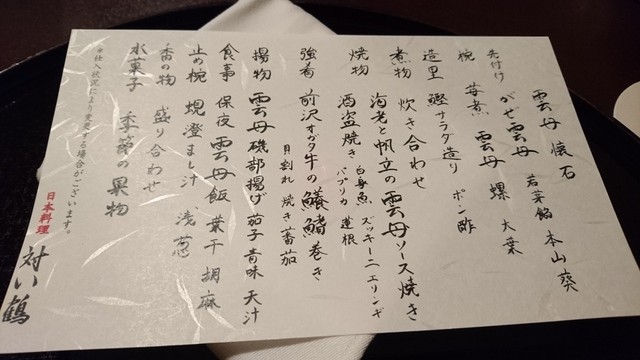 雲丹懐石
先付け がぜ雲丹 若芽餡 本山葵
椀 苺煮 雲丹 螺 大葉
造里 鰹サラダ造り ポン酢
煮物 炊き合わせ
海老と帆立の雲丹ソース焼き
焼物 酒盗焼き 白身魚 ズッキーニ エリンギ
パプリカ 蓮根
強肴 前沢オガタ牛の鱶鰭巻き
貝割れ 焼き蕃茄
揚物 雲丹磯部揚げ 茄子 青味 天汁
食事 保夜雲丹飯 葉干 胡麻
止め椀 蜆澄まし汁 浅葱
香の物 盛り合わせ
水菓子 季節の果物
※仕入状況により変更する場合がございます。
日本料理 対い鶴